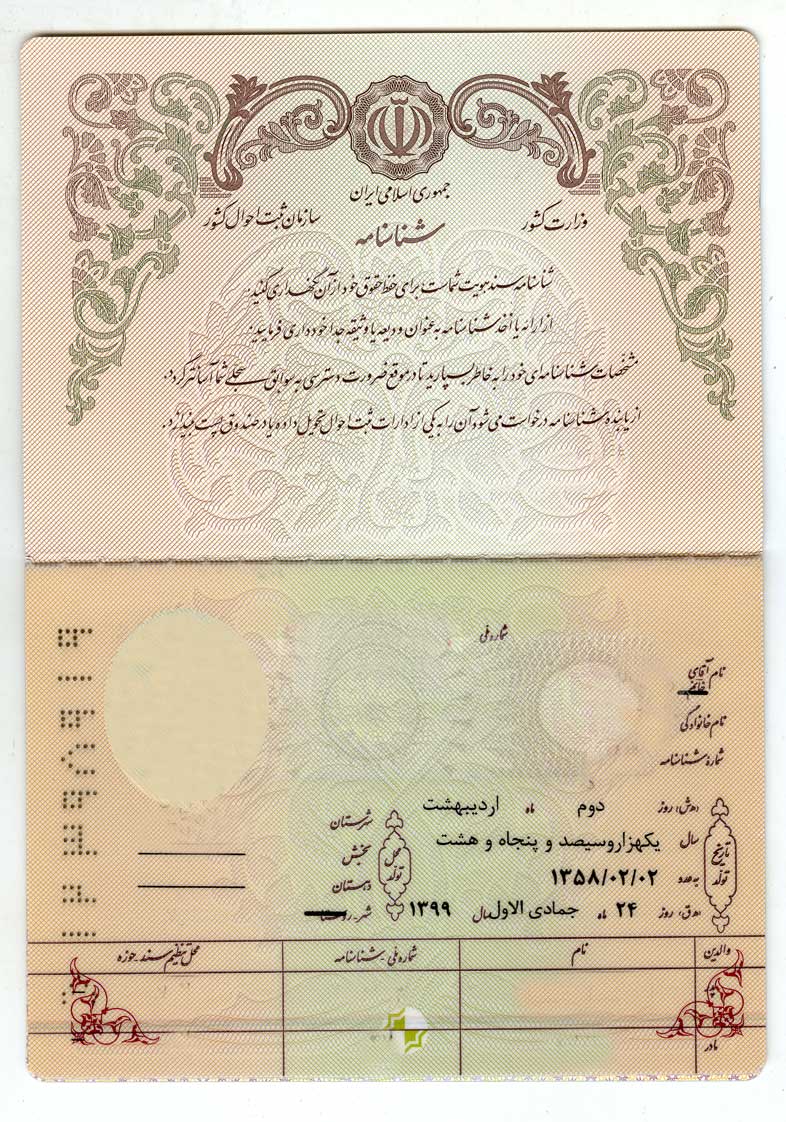 جمهوری اسلامی ایران
وزارت کشور
سازمان ثبت احوال کشور
شناسنامه
شناسنامه سند هویت شماست برای حفظ حقوق خود از آن نگهداری کنید.
از ارائه یا اخذ شناسنامه به عنوان ودیعه یا وثیقه جداً خودداری فرمایید.
مشخصات شناسنامه‌ای خود را به خاطر بسپارید تا در موقع ضرورت دسترسی به سوابق سجلی شما آسانتر گردد.
از یابنده شناسنامه درخواست می شود آن را به یکی از ادارات ثبت احوال تحویل داده یا در صندوق پست بیندازد.
شماره ملی
نام آقای
خانم
نام خانوادگی
شماره شناسنامه
تاریخ تولد
(ه‍.ش) روز دوم ماه اردیبهشت
سال یکهزاروسیصد و پنجاه و هشت
به عدد ۱۳۵۸/۰۲/۰۲
(ه‍.ق) روز ۲۴ ماه جمادی الاول سال ۱۳۹۹
محل تولد
شهرستان
بخش
دهستان
شهر
والدین نام شماره ملی - شناسنامه محل تنظیم سند - حوزه
پدر
مادر